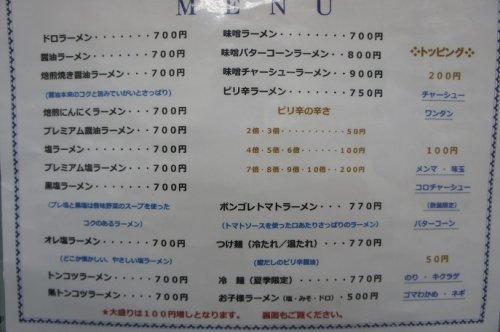 MENU
ドロラーメン・・・・・・・７００円
醤油ラーメン・・・・・・・７００円
焙煎焼き醤油ラーメン・・・７００円
(醤油本来のコクと旨みでいがいとさっぱり)
焙煎にんにくラーメン・・・７００円
プレミアム醤油ラーメン・・７００円
塩ラーメン・・・・・・・・７００円
プレミアム塩ラーメン・・・７００円
黒塩ラーメン・・・・・・・７００円
(プレ塩と黒塩は香味野菜のスープを使った
コクのあるラーメン)
オレ塩ラーメン・・・・・・７００円
(どこか懐かしい、やさしい塩ラーメン)
トンコツラーメン・・・・・７００円
黒トンコツラーメン・・・・７００円
味噌ラーメン・・・・・・・７００円
味噌バターコーンラーメン・・８００円
味噌チャーシューラーメン・・９００円
ピリ辛ラーメン・・・・・・７５０円
ピリ辛の辛さ
２倍・３倍・・・・・・・・・５０円
４倍・５倍・６倍・・・・・１００円
７倍・８倍・９倍・１０倍・・２００円
ボンゴレトマトラーメン・・・７７０円
(トマトソースを使った口あたりさっぱりのラーメン)
つけ麺（冷たれ／温たれ）・・・７７０円
(鰹だしのピリ辛醤油)
冷　麺（夏季限定）・・・・・７７０円
お子様ラーメン（塩・みそ・ドロ）・５００円
トッピング
２００円
チャーシュー
ワンタン
１００円
メンマ ・ 味玉
コロチャーシュー
(数量限定)
バターコーン
５０円
のり ・ キクラゲ
ゴマわかめ ・ ネギ
＊大盛りは１００円増しとなります。　裏面もご覧ください。